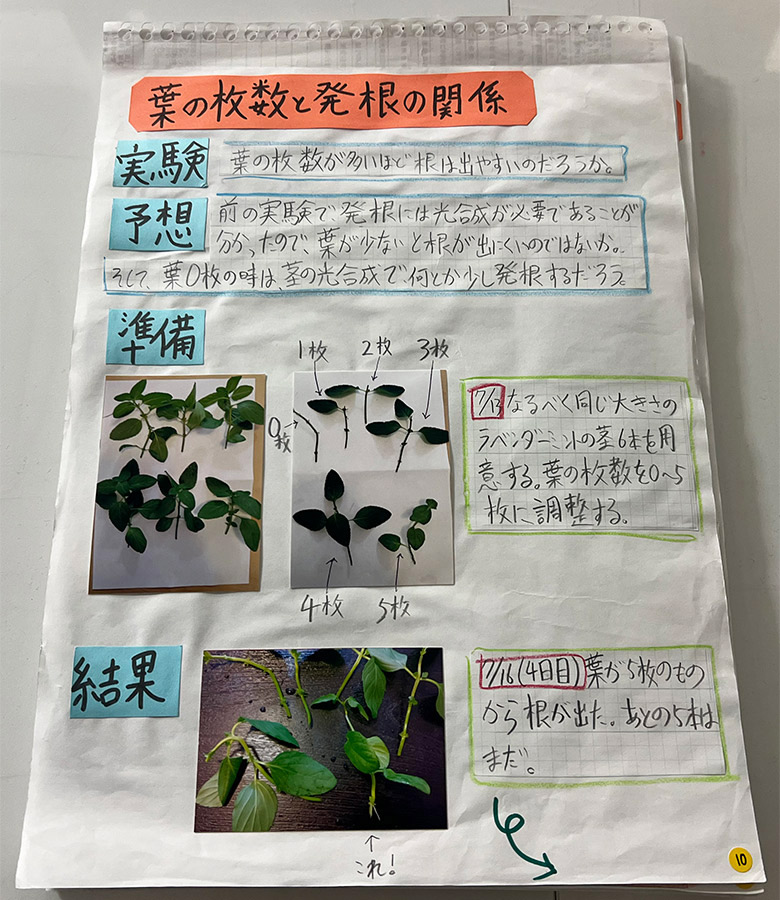 葉の枚数と発根の関係
実験
葉の枚数が多いほど根は出やすいのだろうか。
予想
前の実験で、発根には光合成が必要であることが
分かったので、葉が少ないと根が出にくいのではないか。
そして、葉0枚の時は、茎の光合成で、何とか少し発根するだろう。
準備
1枚
2枚
3枚
0枚
4枚
5枚
7/13 なるべく同じ大きさの
ラベンダーミントの茎6本を用
意する。葉の枚数を0~5
枚に調整する。
結果
7/16(4日目)葉が5枚のもの
から根が出た。あとの5本は
まだ。
これ!
10